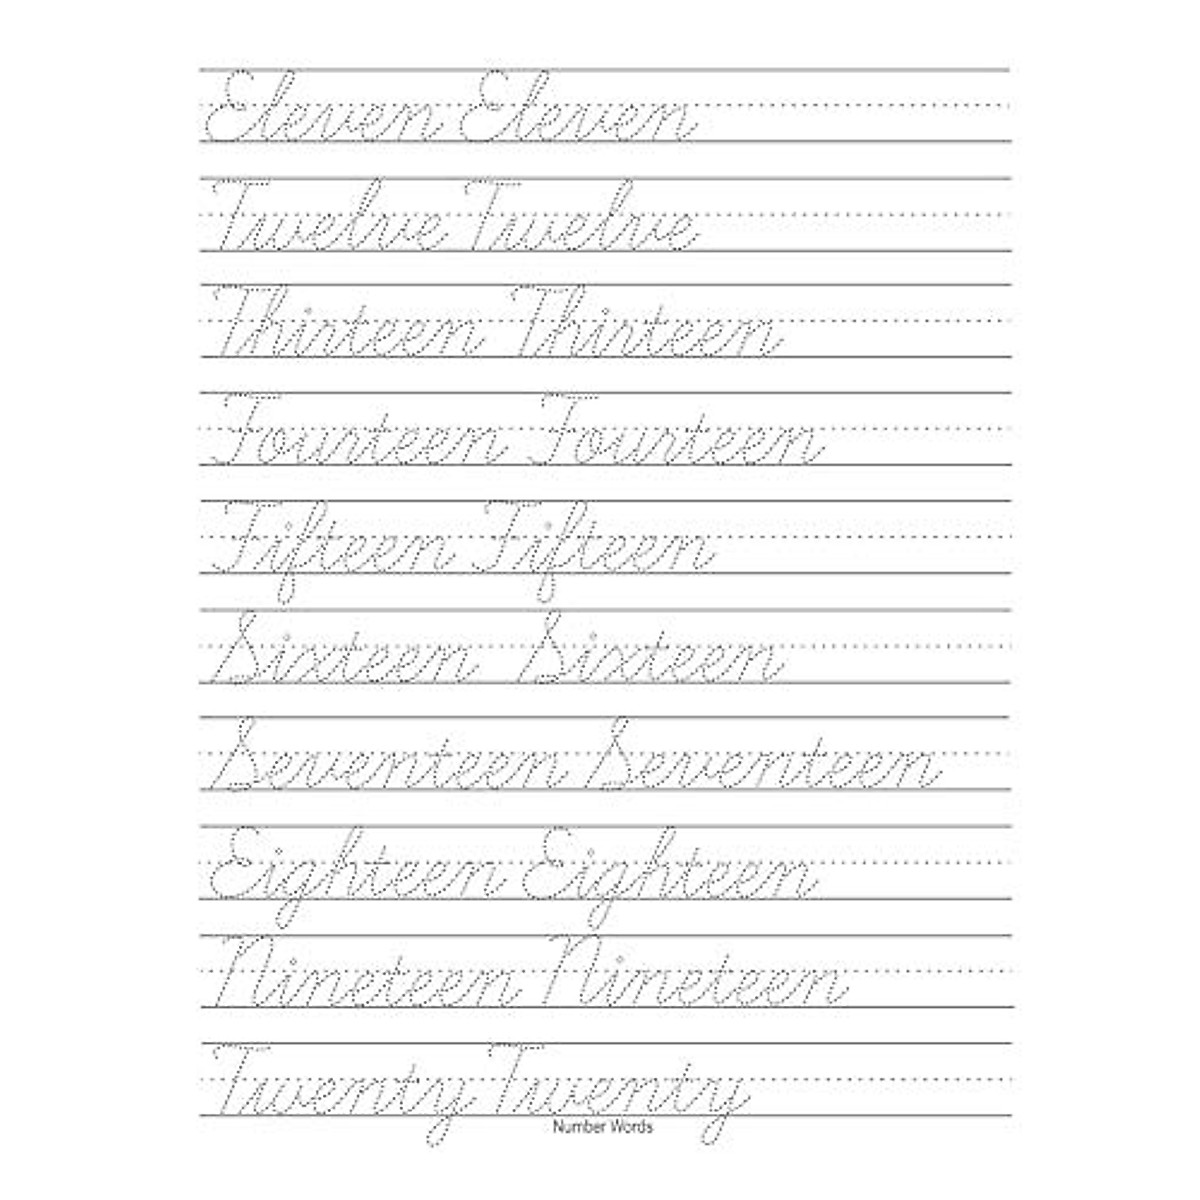 Eleven Eleven
Twelve Twelve
Thirteen Thirteen
Fourteen Fourteen
Fifteen Fifteen
Sixteen Sixteen
Seventeen Seventeen
Eighteen Eighteen
Nineteen Nineteen
Twenty Twenty
Number Words